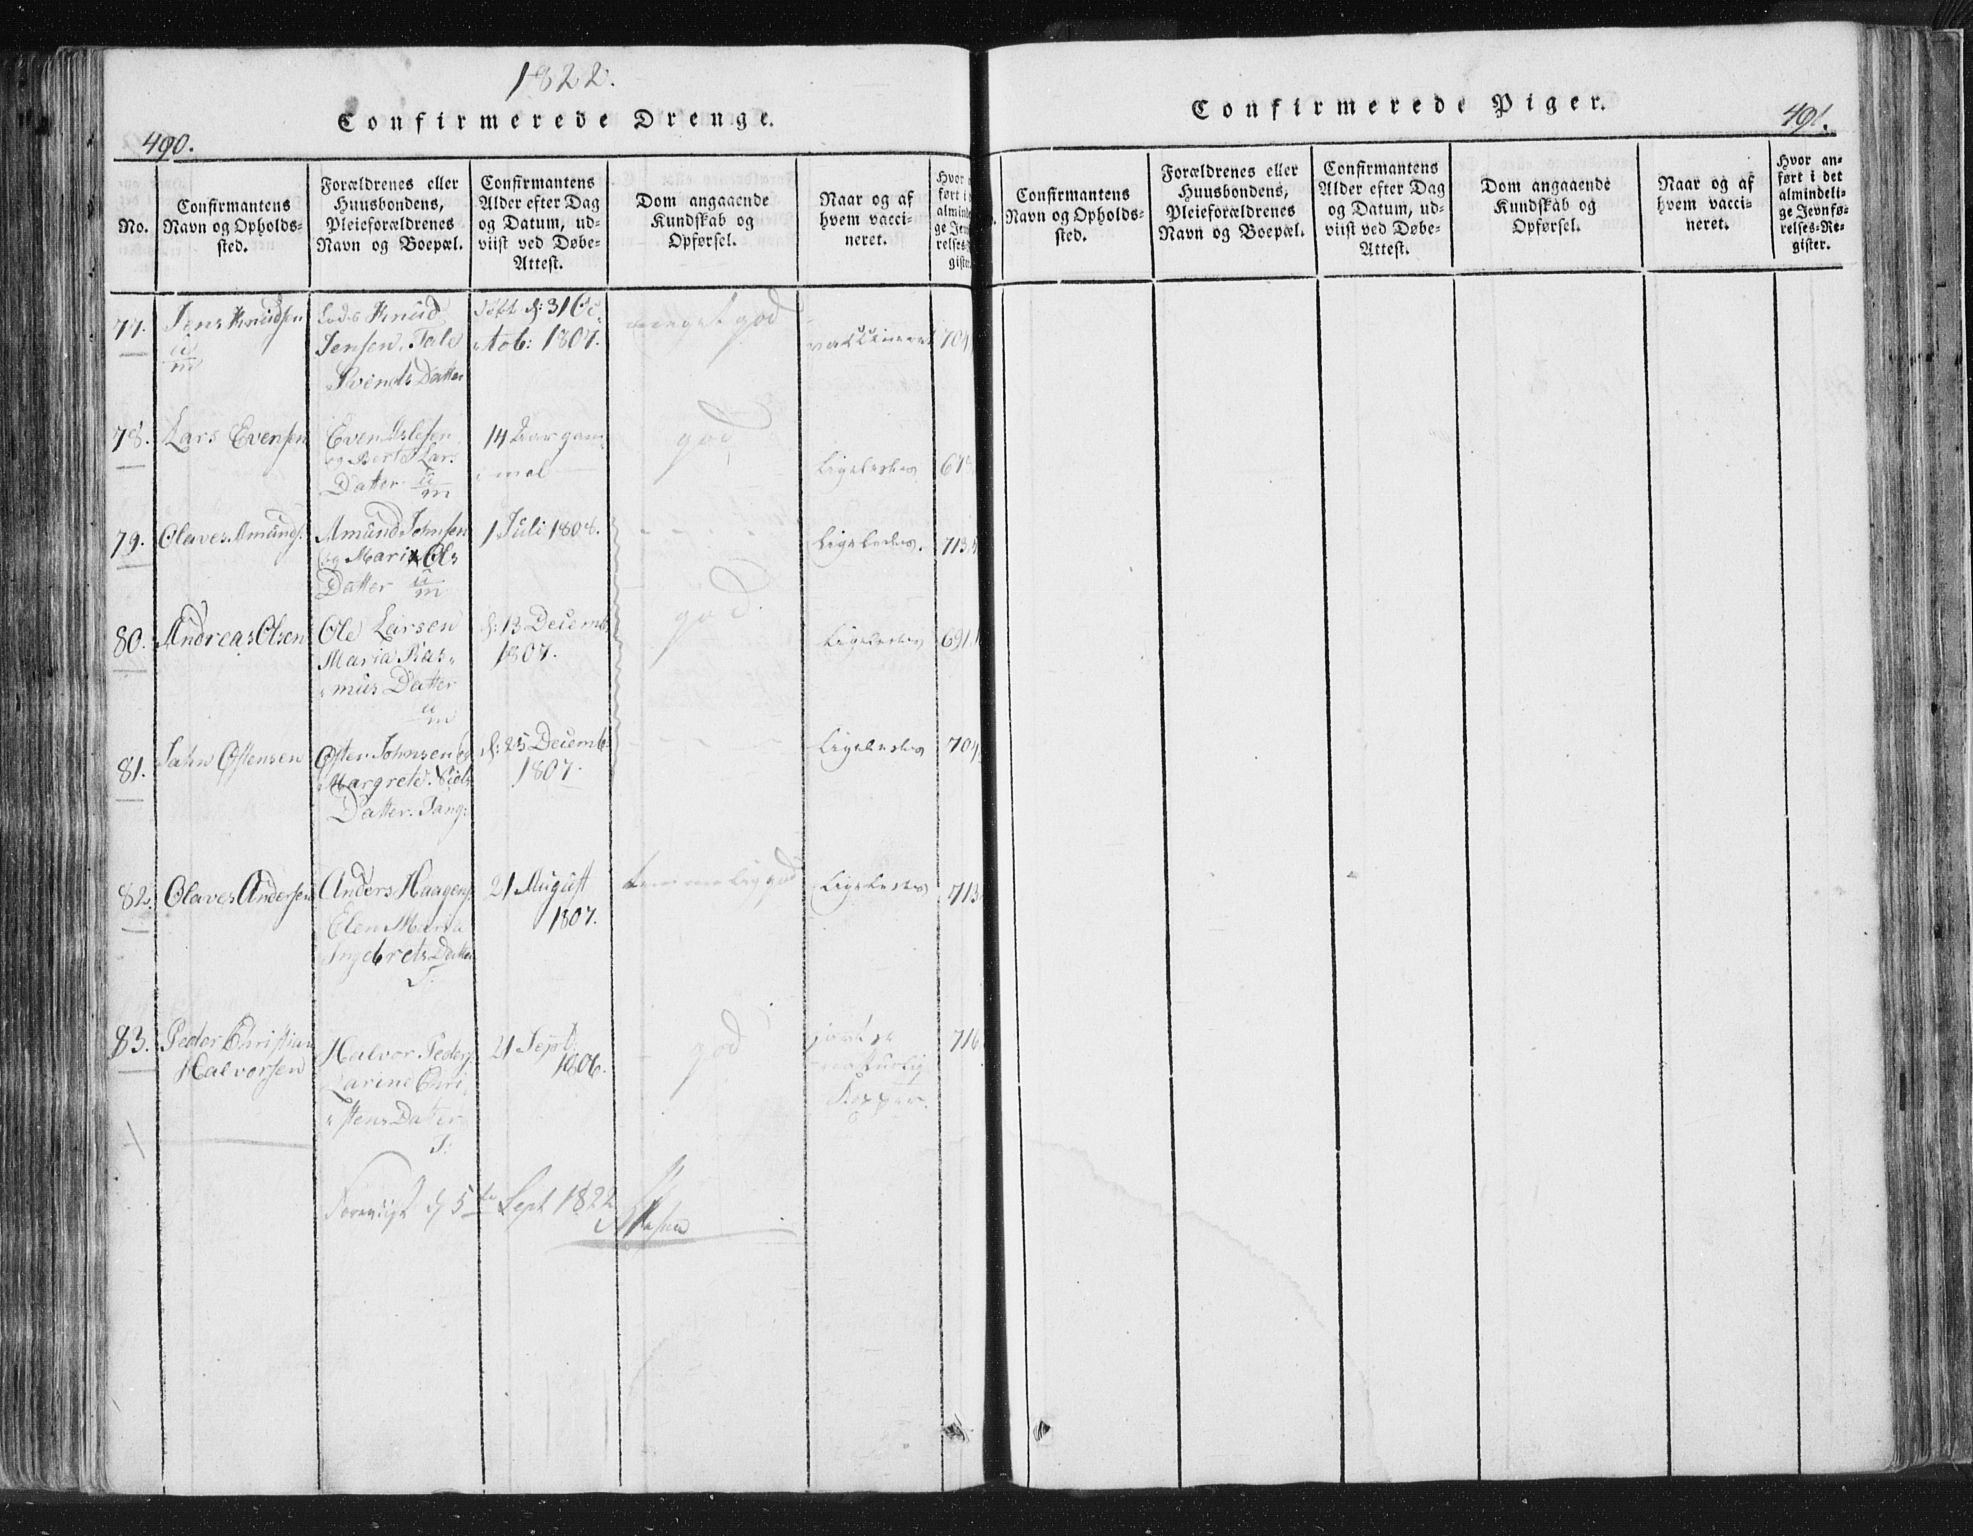 1822.
Confirmerede Drenge.
490.
No.
Confirmantens
Navn og Opholds-
sted.
Forældrenes eller
Huusbondens,
Pleieforældrenes
Navn og Boepæl.
Confirmantens
Alder efter Dag
og Datum, ud-
viist ved Døbe-
Attest.
Dom angaaende
Kundskab og
Opførsel.
Naar og af
hvem vacci-
neret.
Hvor
ført i
almind
ge Jev
relses
giste
77.
Jens Knudsen
Knud
Jensen. Tale
Svends Datter
31 Oc
tob: 1807.
meget god
vaccineret
704
78.
Lars Evensen
Even
og Berte Lars
Datter
14 Aar gam
mel
god
Ligeledes
673
79.
Olaves Amunds.
Amund Johnsen
og Maria Ols
Datter
1 Juli 1808.
Ligeledes.
713
80.
Andreas Olsen
Ole Larsen
Maria Ras
mus Datter
d: 13 Decemb
1807.
god.
Ligeledes
691
81.
John Østensen
Østen Johnsen og
Margrete Niels
Datter. Tang:
d: 25 Decemb:
1807.
Ligeledes
704
82.
Olaves Andersen
Anders Haagens
Elen Maria
Ingebrets Datter
T:
21 August
1807.
temmelig god
Ligeledes
713
83.
Peder Christian
Halvorsen
Halvor Peders
Larine Chri
stens Datter
T:
21 Sept:
1806.
god
naturlig
Kopper.
716
d 5te Sept 1822
Confirmerede Piger.
491.
Confirmantens
Navn og Opholds-
sted.
Forældrenes eller
Huusbondens,
Pleieforældrenes
Navn og Boepæl.
Confirmantens
Alder efter Dag
og Datum, ud-
viist ved Døbe-
Attest.
Dom angaaende
Kundskab og
Opførsel.
Naar og af
hvem vacci-
neret.
Hvor an-
ført i det
almindeli-
ge Jevnfø-
relses-Re-
gister.